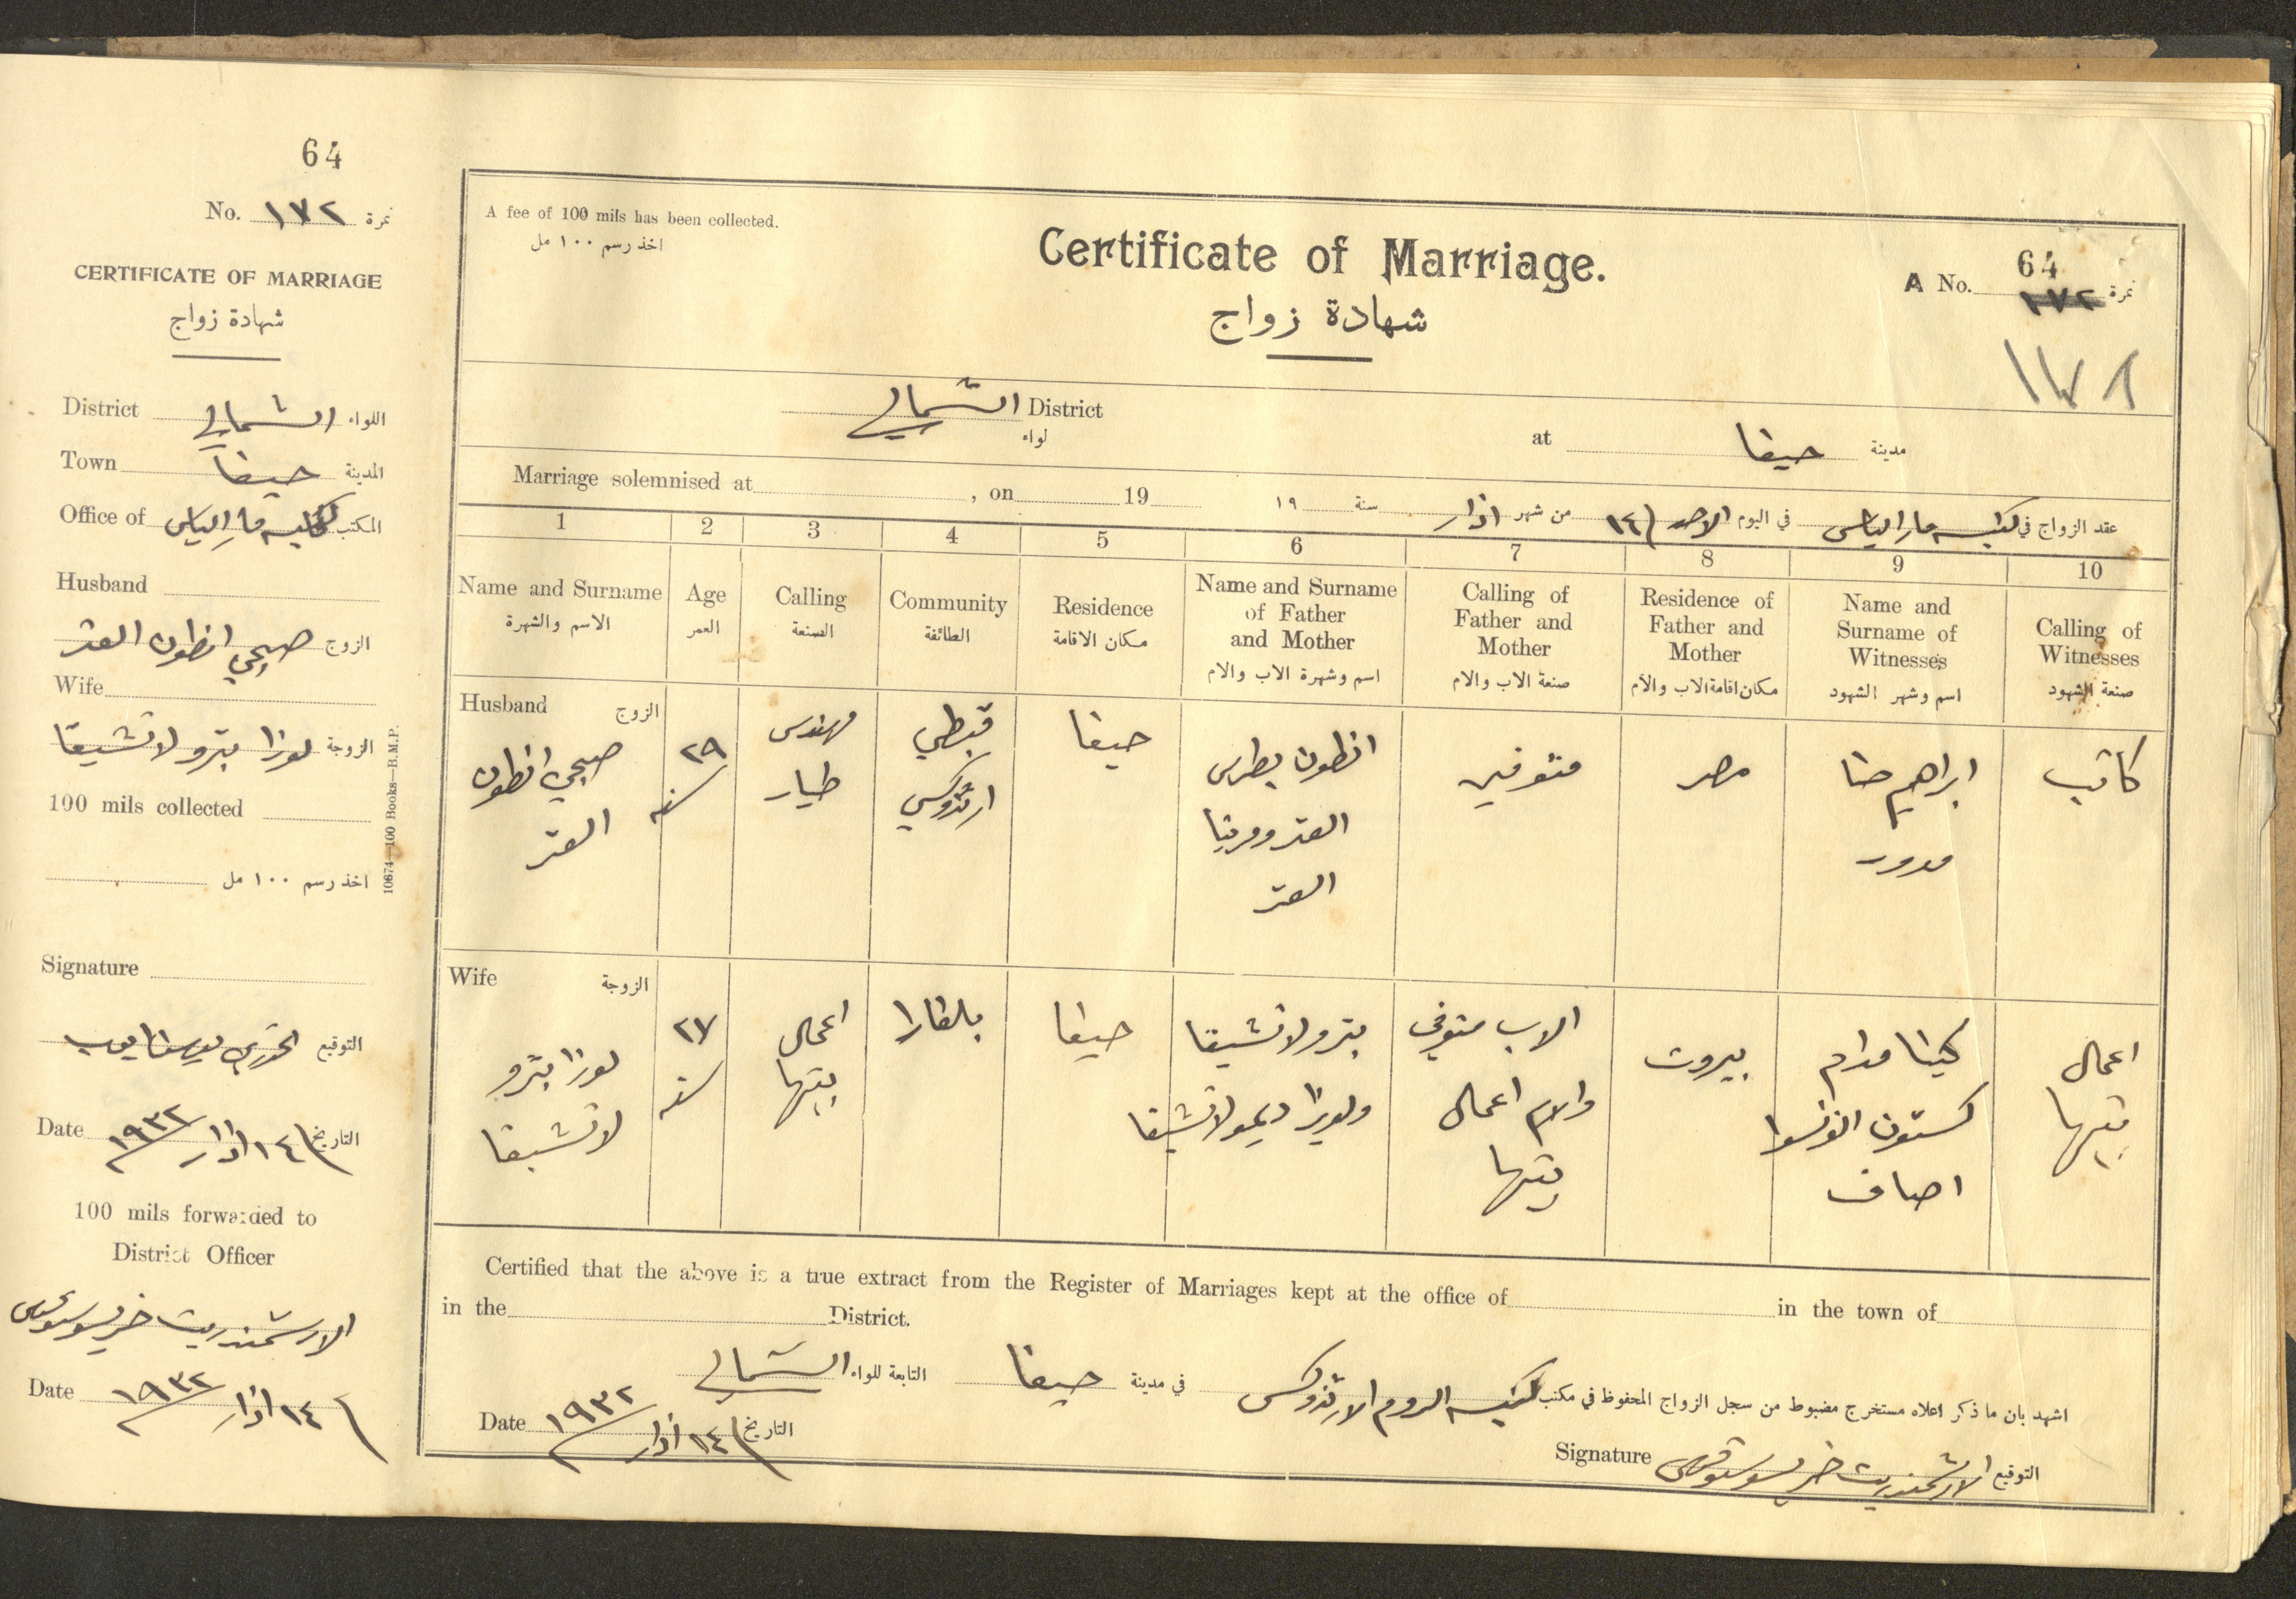 64
No. ١٧٢ نمرة
CERTIFICATE OF MARRIAGE
شهادة زواج
District الشمالي اللواء
Town حيفا المدينة
Office of كنيسة مار الياس المكتب
Husband
الزوج صبحي انطون العتر
Wife
الزوجة لورا بترو لاتشيقا
100 mils collected
اخذ رسم ١٠٠ مل
Signature
التوقيع الخوري
Date ١٤ اذار ١٩٣٢ التاريخ
100 mils forwarded to
District Officer
الارشمندريت
Date ١٤ اذار ١٩٣٢
10674—100 Books—B.M.P.
A fee of 100 mils has been collected.
اخذ رسم ١٠٠ مل
Certificate of Marriage.
شهادة زواج
64
A No. ١٧٢ نمرة
١٧٨
الشمالي District
لواء
at حيفا مدينة
Marriage solemnised at , on 19
عقد الزواج في كنيسة مار الياس في اليوم الاحد ١٤ من شهر اذار سنة ١٩
1 2 3 4 5 6 7 8 9 10
Name and Surname
الاسم والشهرة
Age
العمر
Calling
الصنعة
Community
الطائفة
Residence
مكان الاقامة
Name and Surname
of Father
and Mother
اسم وشهرة الاب والام
Calling of
Father and
Mother
صنعة الاب والام
Residence of
Father and
Mother
مكان اقامة الاب والام
Name and
Surname of
Witnesses
اسم وشهر الشهود
Calling of
Witnesses
صنعة الشهود
Husband الزوج
صبحي انطون
العتر
٢٩
سنه
مهندس
طيار
قبطي
ارثوذكسي
حيفا
انطون بطرس
العتر ومرتا
العتر
متوفين
مصر
ابراهيم حنا
مدور
كاتب
Wife الزوجة
لورا بترو
لاتشيقا
٢٧
سنه
اعمال
بيتها
بلغارا
حيفا
بترو لاتشيقا
ولاتشيقا
الاب متوفي
والام اعمال
بيتها
بيروت
مدام
كستون
اصاف
اعمال
بيتها
Certified that the above is a true extract from the Register of Marriages kept at the office of in the town of
in the District.
اشهد بان ما ذكر اعلاه مستخرج مضبوط من سجل الزواج المحفوظ في مكتب كنيسة الروم الارثوذكس في مدينة حيفا التابعة للواء الشمالي
Date ١٤ اذار ١٩٣٢ التاريخ
Signature الارشمندريت التوقيع